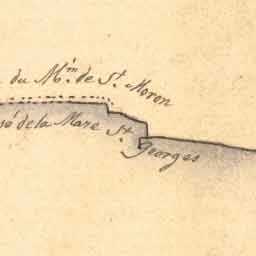 du M.in de St. Moron
sé de la Mare St.
Georges